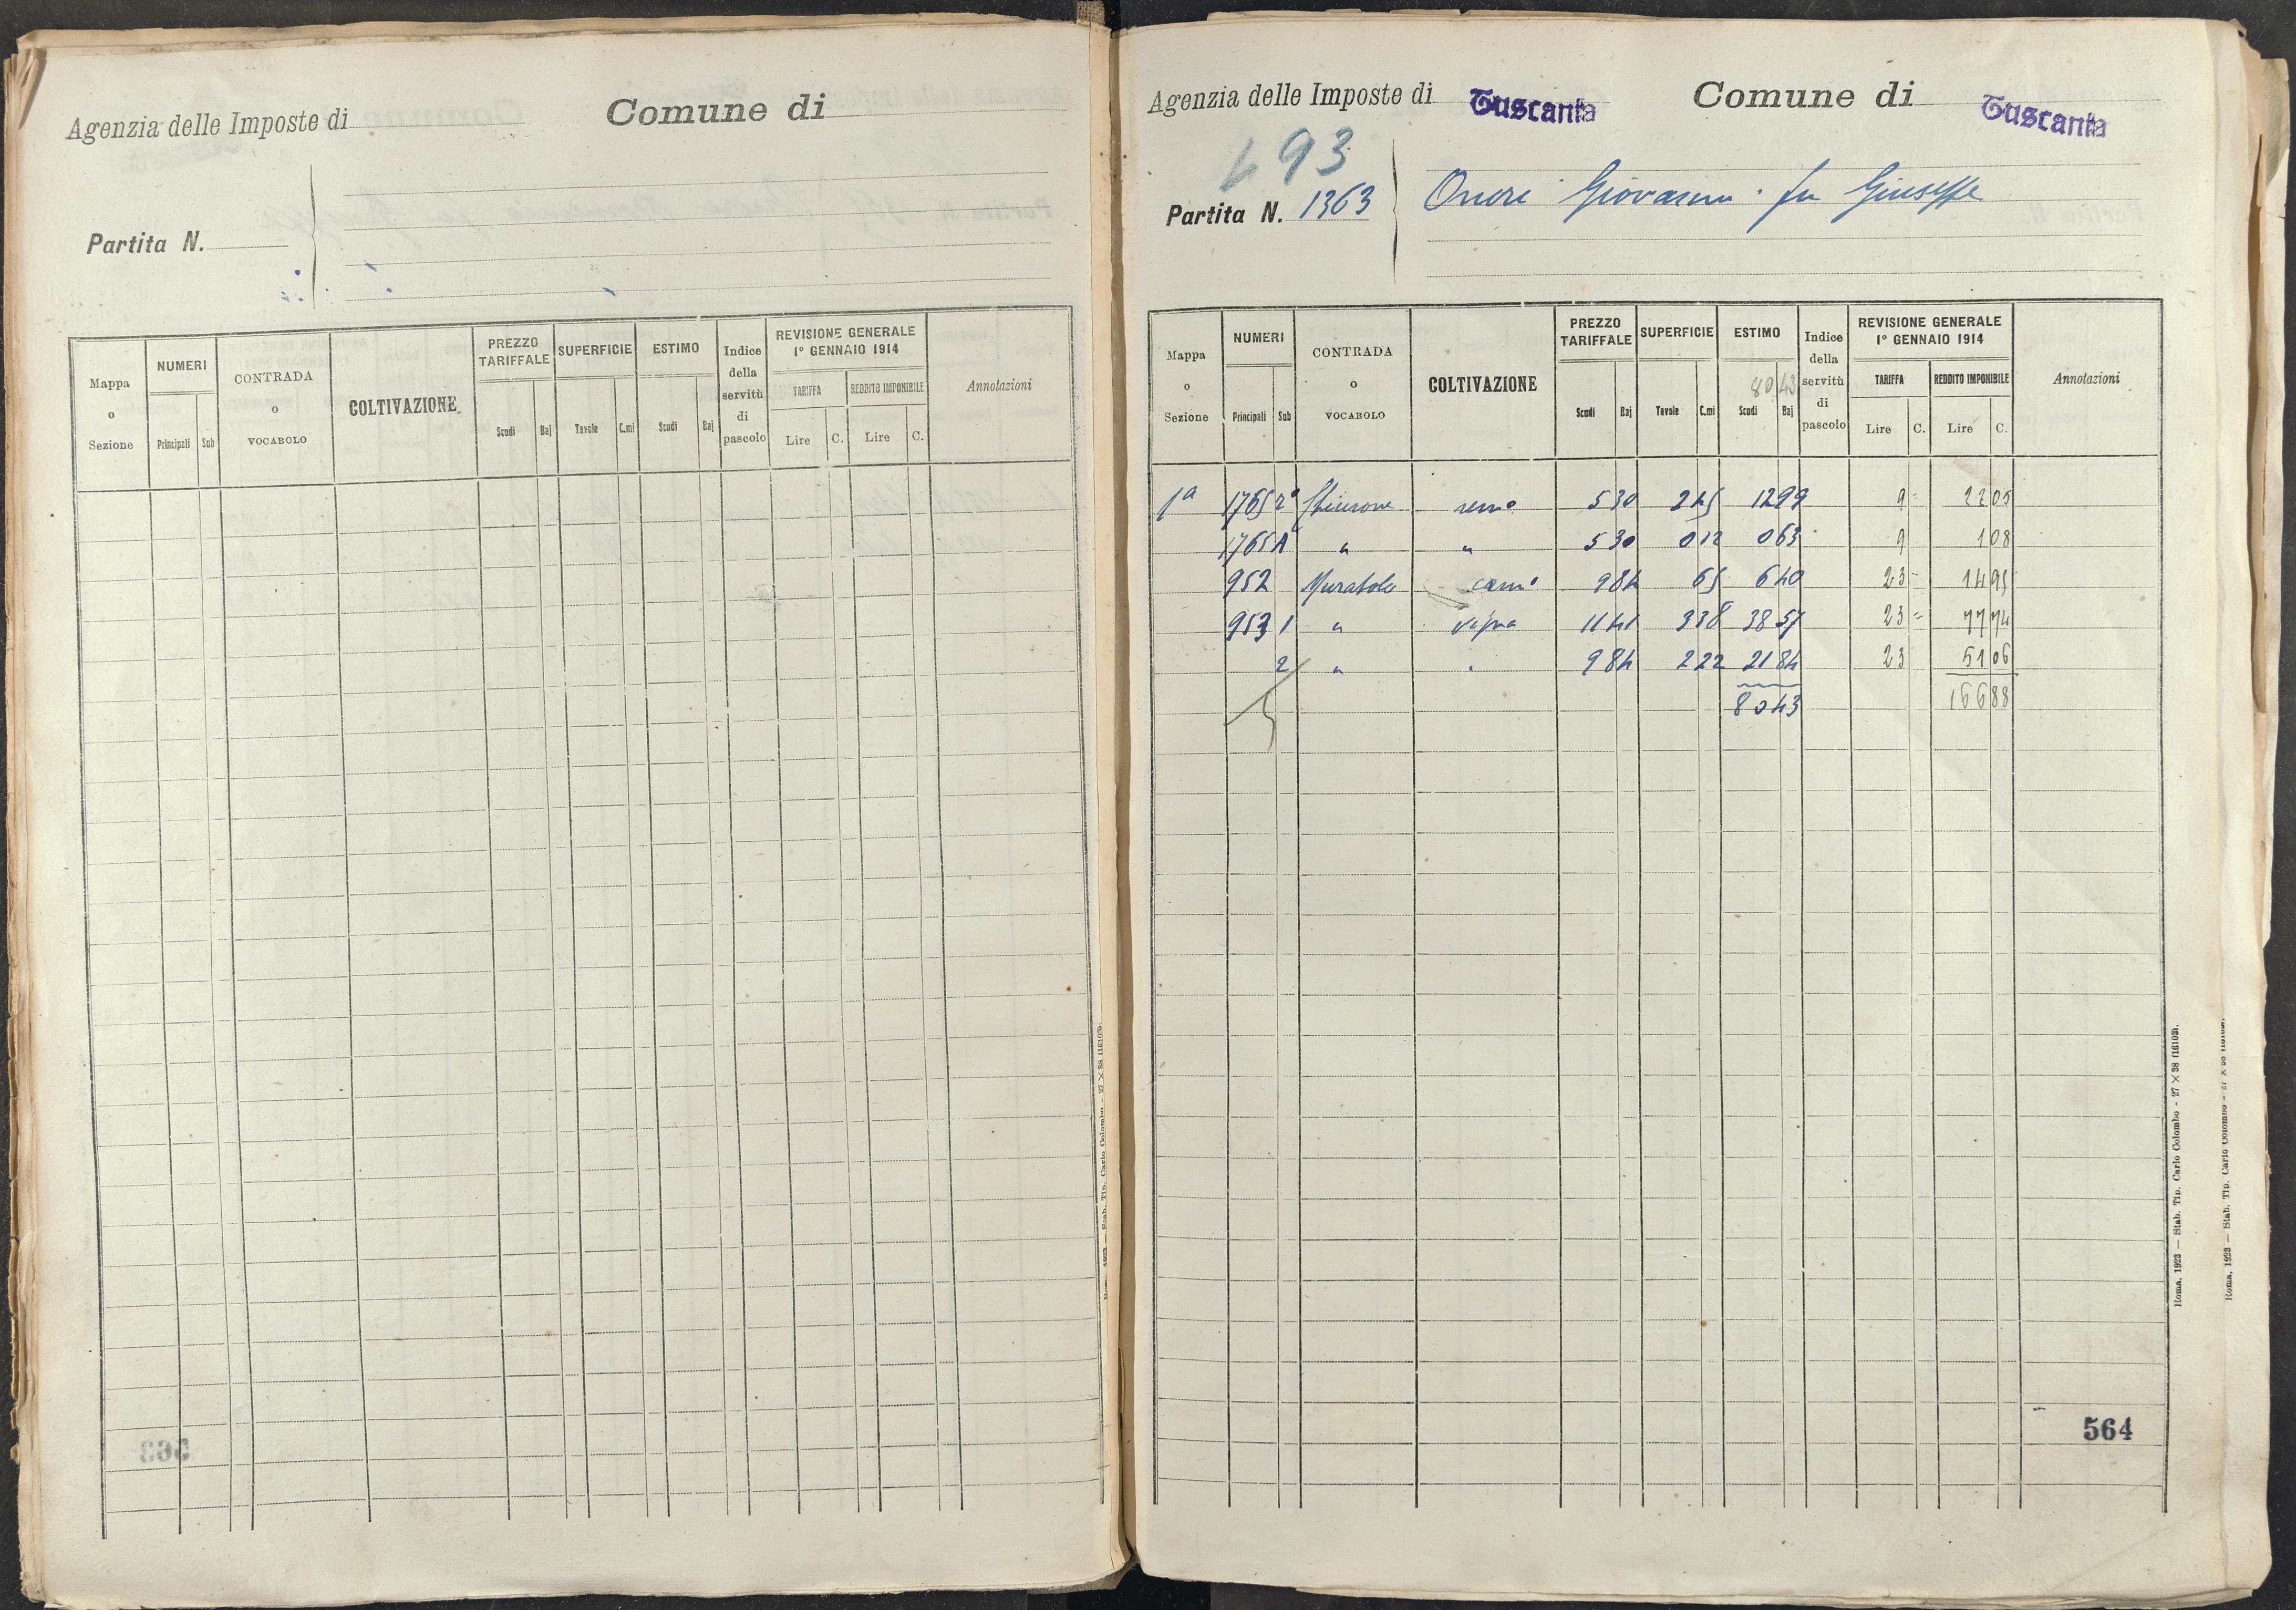 Agenzia delle Imposte di
Comune di
Partita N.
Mappa o Sezione
NUMERI
Principali
Sub
CONTRADA o VOCABOLO
COLTIVAZIONE
PREZZO TARIFFALE
Scudi
Baj
SUPERFICIE
Tavole
C.mi
ESTIMO
Scudi
Baj
Indice della servitù di pascolo
REVISIONE GENERALE
1° GENNAIO 1914
TARIFFA
REDDITO IMPONIBILE
Lire
C.
Lire
C.
Annotazioni
Roma, 1923 — Stab. Tip. Carlo Colombo - 27 × 38 (16103).
563
Agenzia delle Imposte di Tuscania
Comune di Tuscania
693
Partita N. 1363
Onori Giovanni fu Giuseppe
Mappa o Sezione
NUMERI
Principali
Sub
CONTRADA o VOCABOLO
COLTIVAZIONE
PREZZO TARIFFALE
Scudi
Baj
SUPERFICIE
Tavole
C.mi
ESTIMO
80 43
Scudi
Baj
Indice della servitù di pascolo
REVISIONE GENERALE
1° GENNAIO 1914
TARIFFA
REDDITO IMPONIBILE
Lire
C.
Lire
C.
Annotazioni
1a 1765 2° semo 5 30 2 45 12 99 9 = 22 05
1765 A " " 5 30 0 12 0 63 9 1 08
952 9 84 65 6 40 23 = 14 95
953 1 " vigna 11 41 3 38 38 57 23 = 77 74
2 " " 9 84 2 22 21 84 23 51 06
80 43 166 88
564
Roma, 1923 — Stab. Tip. Carlo Colombo - 27 × 38 (16103).
Roma, 1923 — Stab. Tip. Carlo Colombo - 27 × 38 (16103).